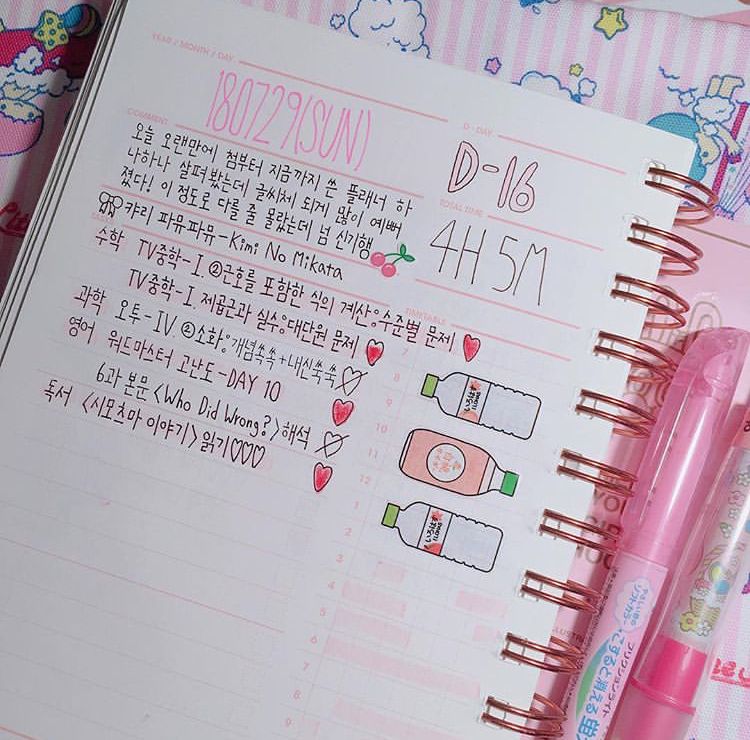 YEAR / MONTH / DAY
180729(SUN)
COMMENT
오늘 오랜만에 첨부터 지금까지 쓴 플래너 하
나하나 살펴봤는데 글씨체 되게 많이 예뻐
졌다! 이 정도로 다를 줄 몰랐는데 넘 신기행
캬리 파뮤파뮤-Kimi No Mikata
D-DAY
D-16
TOTAL TIME
4H 5M
수학 TV중학-I. ②근호를 포함한 식의 계산。수준별 문제
TV중학-I. 제곱근과 실수。대단원 문제
과학 오투-IV. ②소화。개념쏙쏙+내신쑥쑥
영어 워드마스터 고난도-DAY 10
6과 본문 <Who Did Wrong?> 해석
독서 <시모츠마 이야기> 읽기♡♡♡
TIMETABLE
7
8
9
10
11
12
1
2
3
4
5
6
7
8
9
こすると消える蛍